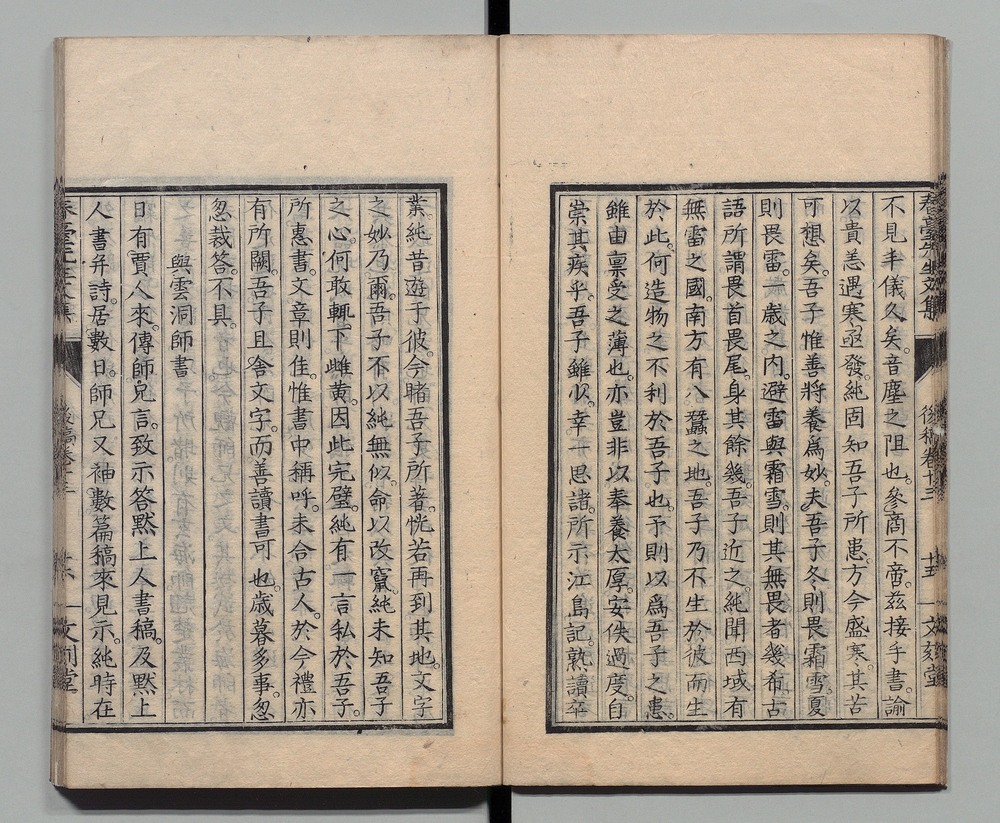 不見丰儀久矣。音塵之阻也。參商不啻。茲接手書。諭
以貴恙遇寒亟發。純固知吾子所患。方今盛寒。其苦
可想矣。吾子惟善將養爲妙。夫吾子冬則畏霜雪。夏
則畏雷。一歲之内。避雷與霜雪。則其無畏者幾希。古
語所謂畏首畏尾。身其餘幾。吾子近之。純聞西域有
無雷之國。南方有八蠶之地。吾子乃不生於彼而生
於此。何造物之不利於吾子也。予則以爲吾子之患。
雖由稟受之薄也。亦豈非以奉養太厚。安佚過度。自
祟其疾乎。吾子雖小。幸一思諸。所示江島記。熟讀卒
業。純昔遊于彼。今睹吾子所著。恍若再到其地。文字
之妙乃爾。吾子不以純無似。命以改竄。純未知吾子
之心。何敢輒下雌黄。因此完璧。純有一言私於吾子。
所惠書。文章則佳。惟書中稱呼。未合古人。於今禮亦
有所闕。吾子且舍文字。而善讀書可也。歲暮多事。忽
忽裁答。不具。
與雲洞師書
日有賈人來。傳師兄言。致示答黙上人書稿。及黙上
人書并詩。居數日。師兄又袖數篇稿來見示。純時在
後稿卷十三
十五
文刻堂